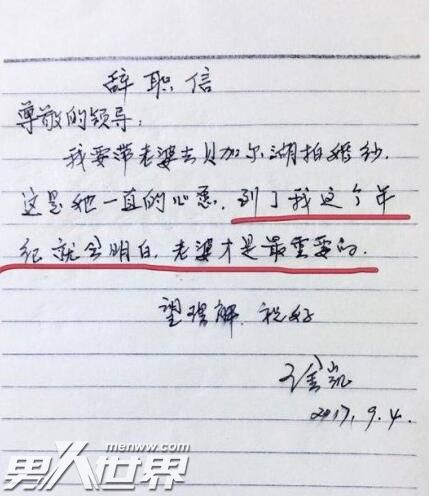 辞职信
尊敬的领导:
我要带老婆去贝加尔湖拍婚纱,
这是她一直的心愿. 到了我这个年
纪就会明白, 老婆才是最重要的.
望理解, 祝好
凯
2017.9.4.
menww.com
男人世界